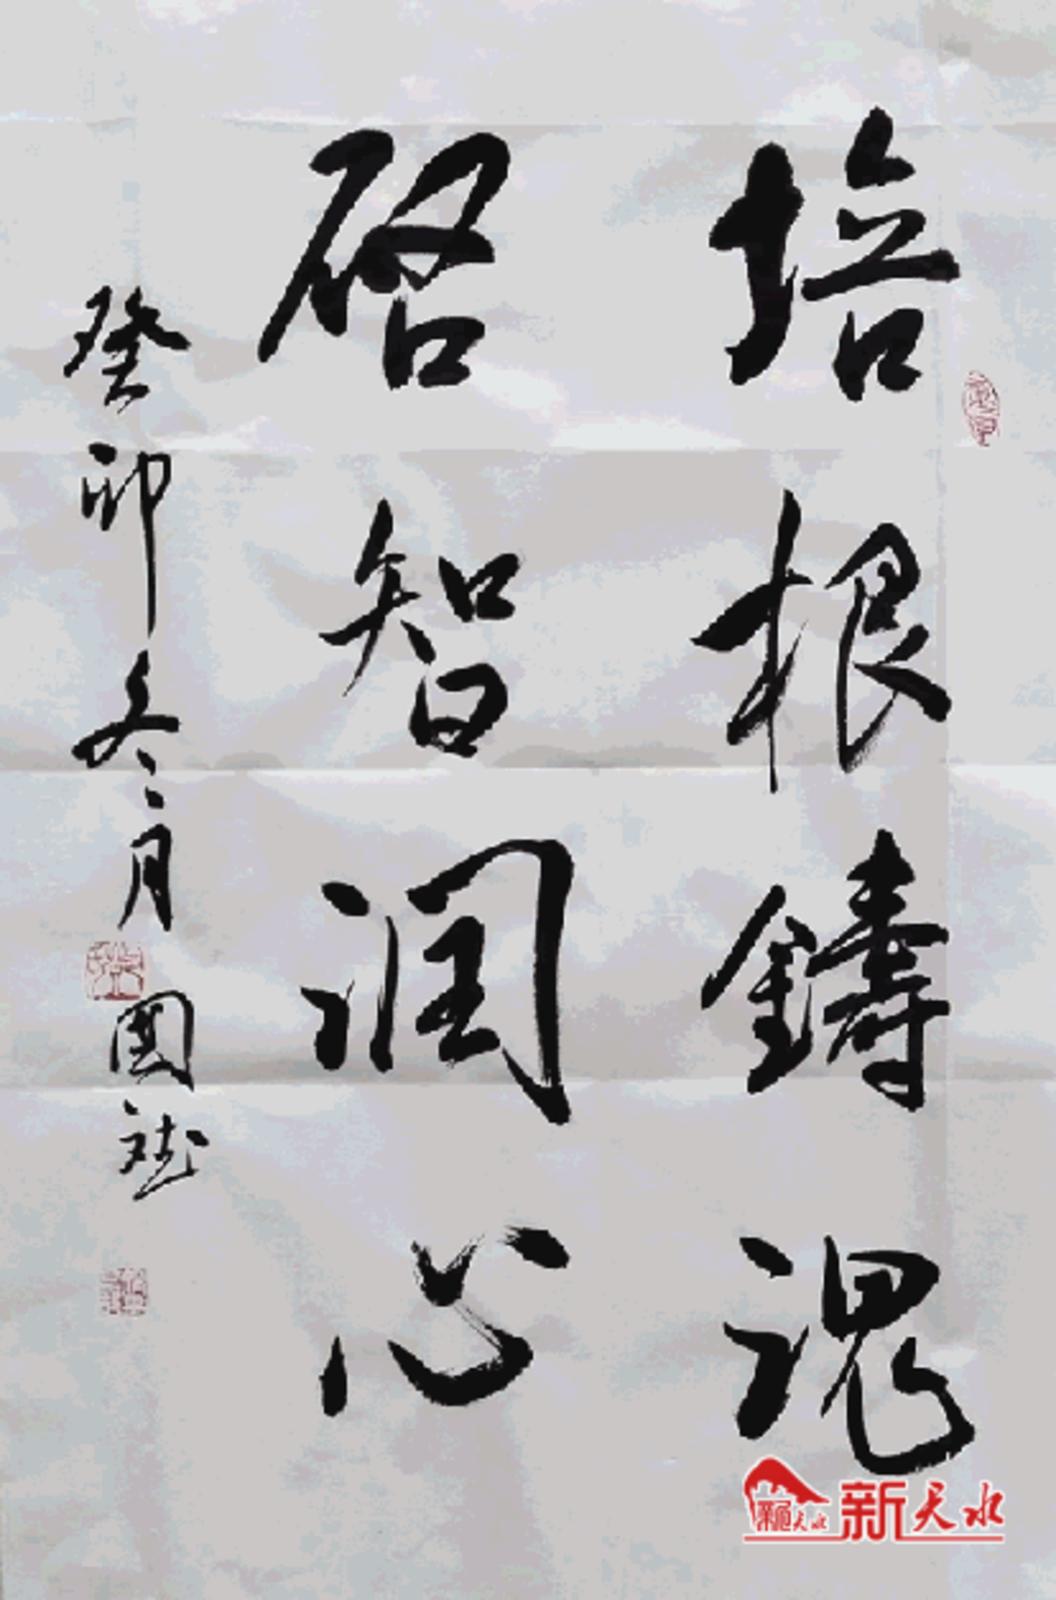 培根鑄魂
启智润心
癸卯冬月國斌
新天水